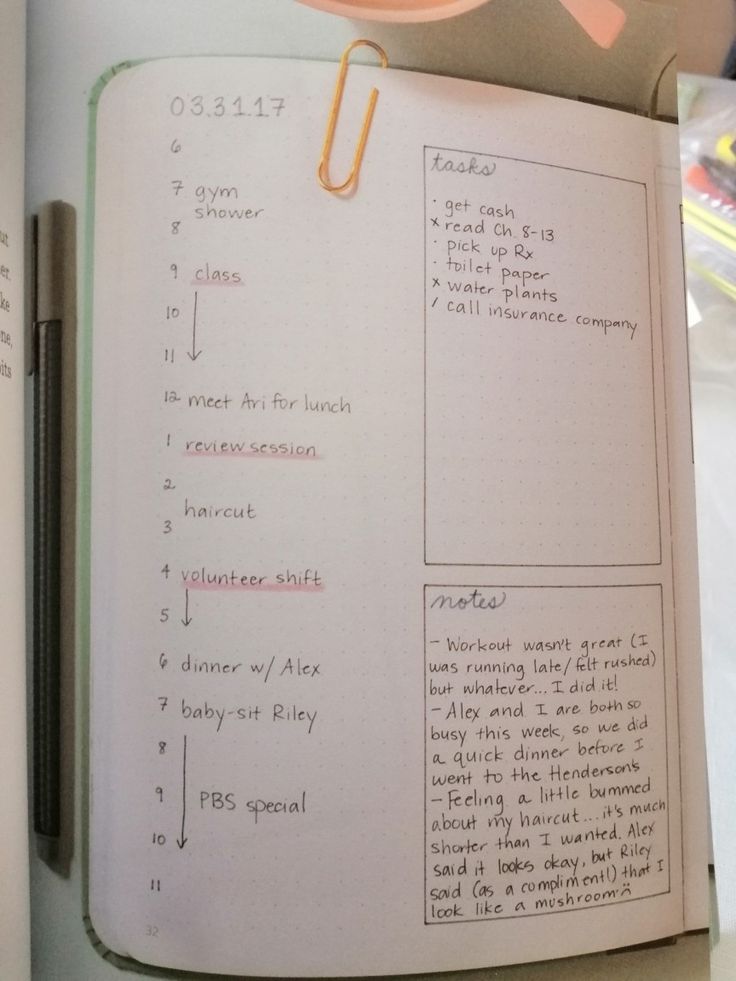 ut
er.
ke
ne,
its
03.31.17
6
7 gym
shower
8
9 class
10
11
12 meet Ari for lunch
1 review session
2
haircut
3
4 volunteer shift
5
6 dinner w/ Alex
7 baby-sit Riley
8
9 PBS special
10
11
32
tasks
· get cash
x read Ch. 8-13
· pick up Rx
· toilet paper
x water plants
/ call insurance company
notes
- Workout wasn't great (I
was running late/felt rushed)
but whatever... I did it!
- Alex and I are both so
busy this week, so we did
a quick dinner before I
went to the Henderson's
- Feeling a little bummed
about my haircut...it's much
shorter than I wanted. Alex
said it looks okay, but Riley
said (as a compliment!) that I
look like a mushroom :(